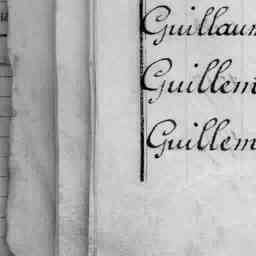 Guillaum
Guillem
Guillem